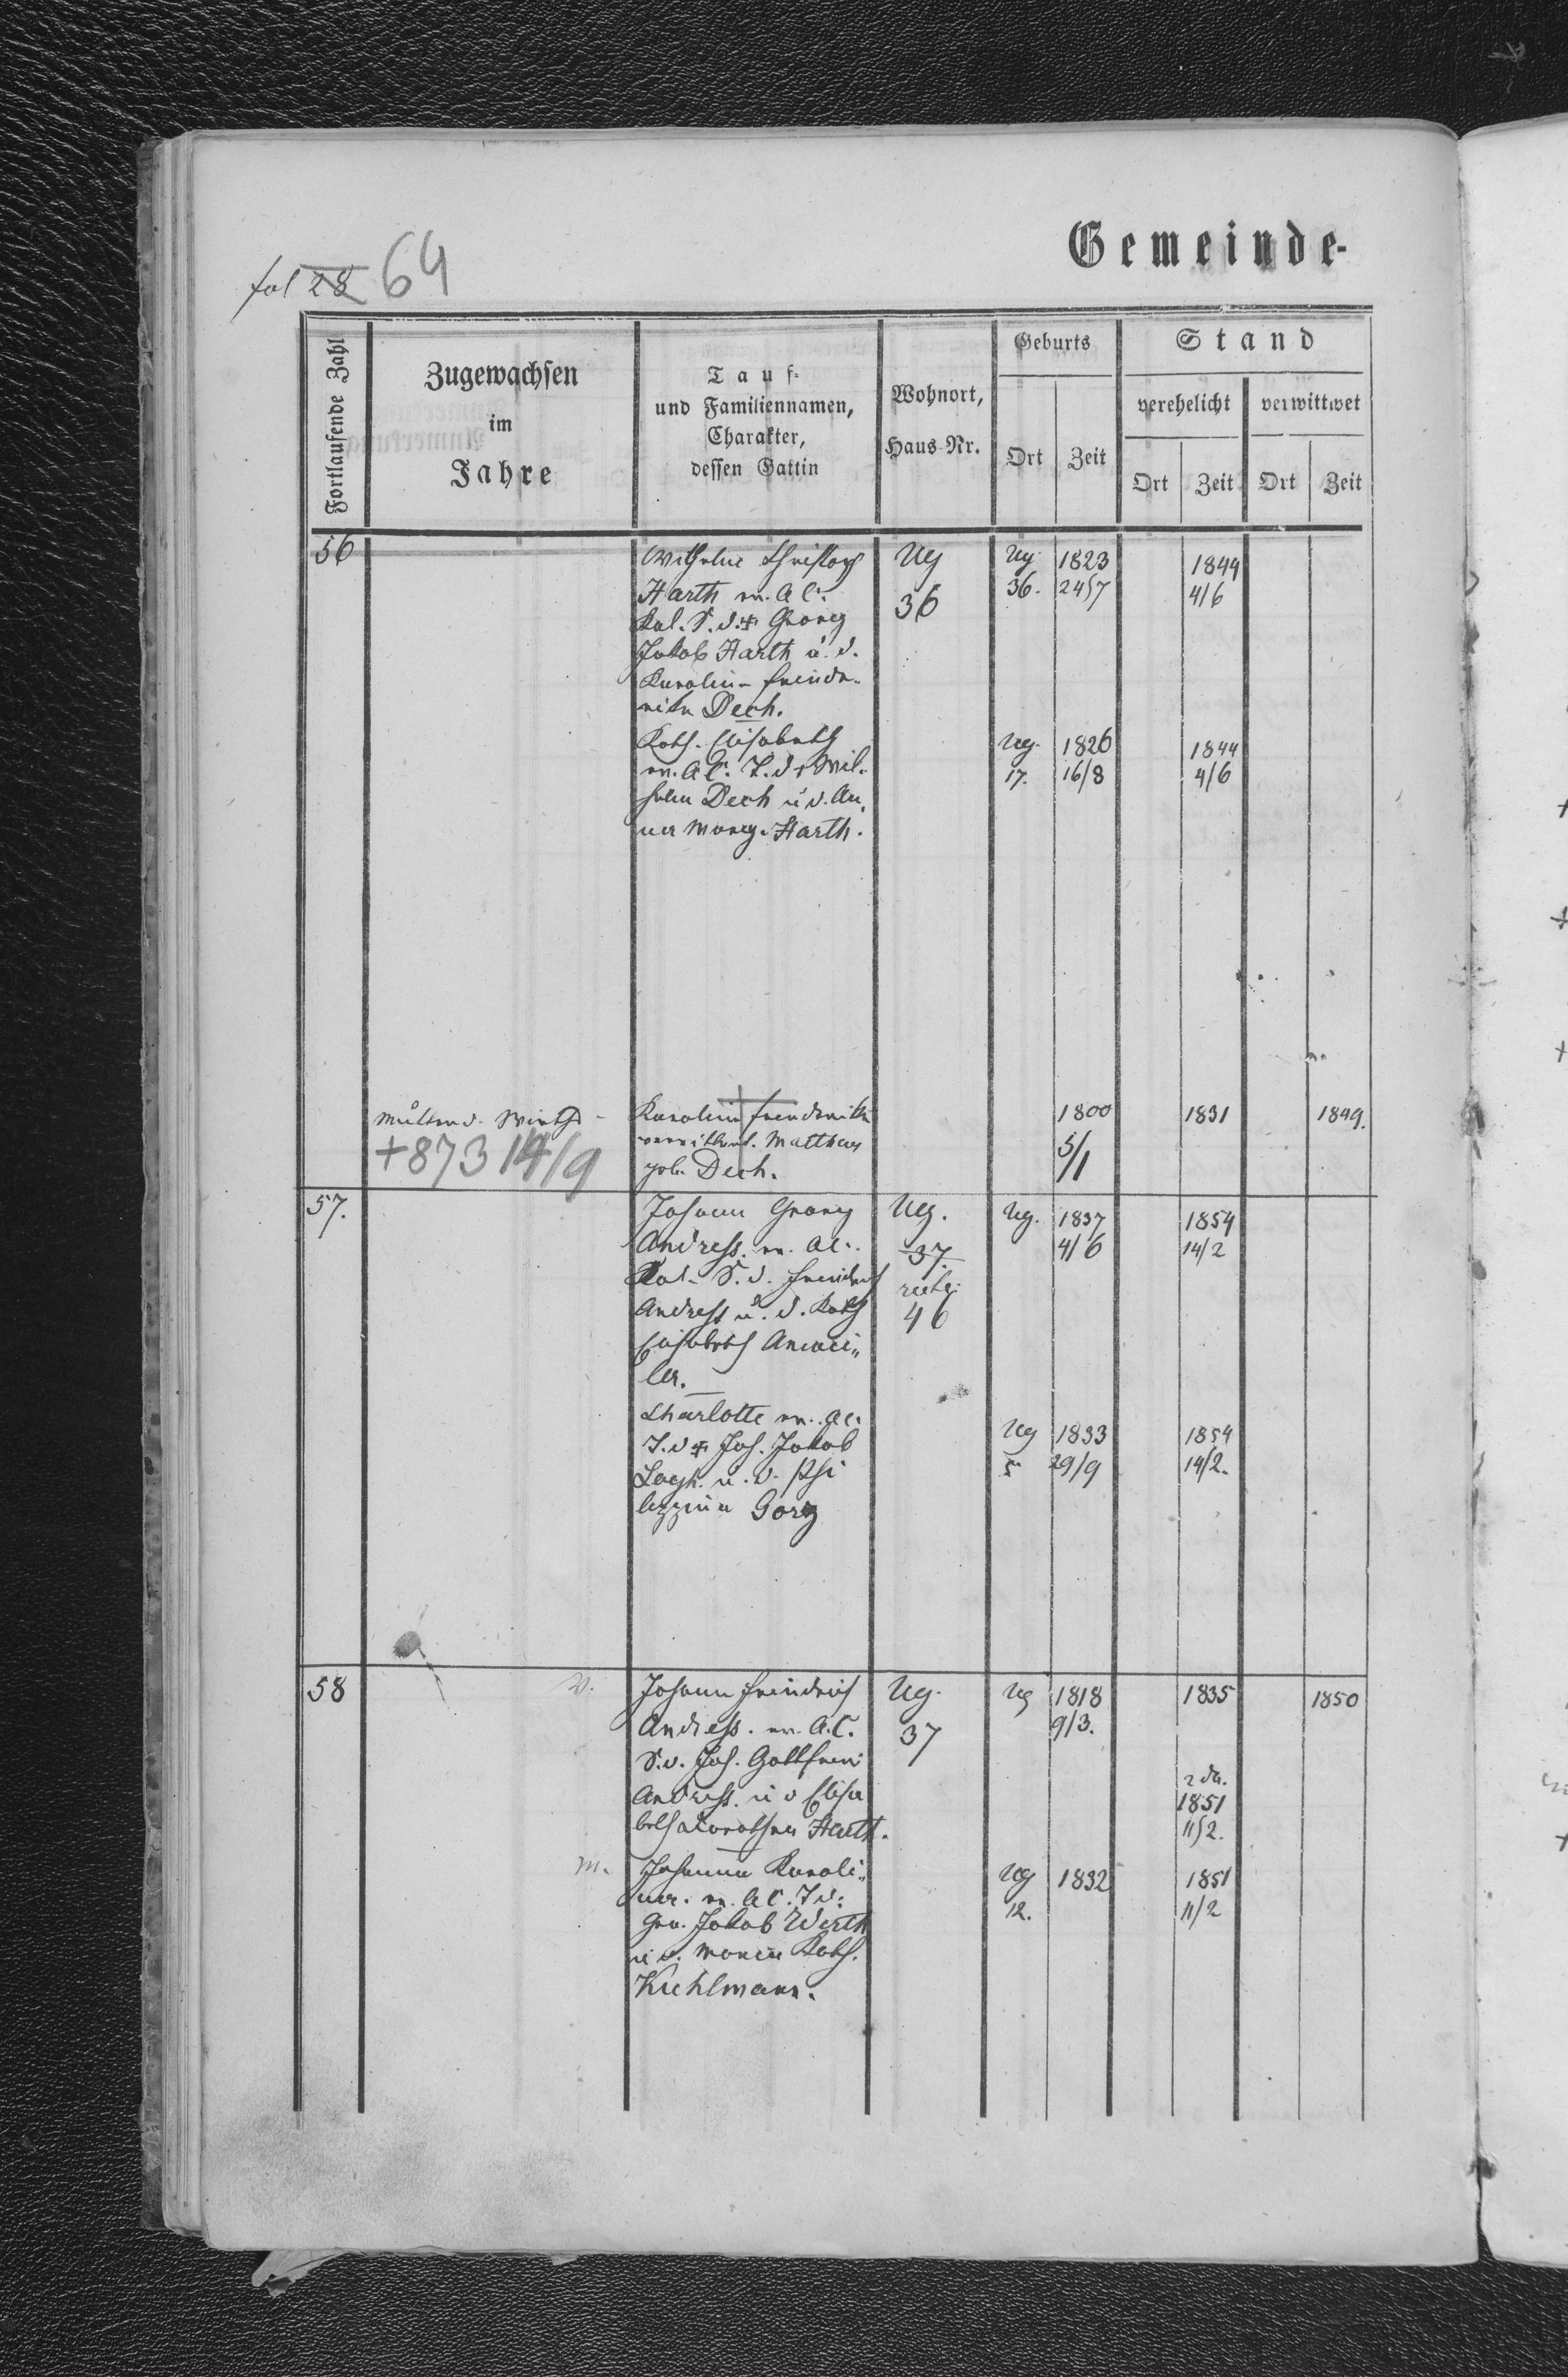 Gemeinde-
fol 28 64
Fortlaufende Zahl
Zugewachsen
im
Jahre
Tauf-
und Familiennamen,
Charakter,
dessen Gattin
Wohnort,
Haus-Nr.
Geburts
Ort Zeit
Stand
verehelicht verwittwet
Ort Zeit Ort Zeit
56 Wilhelm Christoph Ug Ug 1823 1844
Harth ev. A C. 36 36. 24/7 4/6
Kol. S. d. + Georg
Jakob Harth u. d.
Karolin- Friede-
rike Dech.
Kath. Elisabeth Ug. 1826 1844
ev. A C. T. d + Wil- 17. 16/8 4/6
helm Dech u d. An-
na Marg. Harth.
Mutter d. Wirths - Karolina Friederike 1800 1831 1849.
+873 14/9 verwittwet. Matthaus 5/1
geb. Dech.
57. Johann Georg Ug. Ug. 1837 1854
Andress. ev. AC. 37. 4/6 14/2
Kol- S. d. Friedrich
Andress u. d. Kath 46
Elisabeth
ler.
Charlotte ev. AC. Ug 1833 1854
T. d + Joh. Jakob 5 29/9 14/2.
u. d. Phi
lippina Gorg
58 Johann Friedrich Ug. Ug 1818 1835 1850
Andress. ev. A.C. 37 9/3.
S. d. Joh. Gottfried
Andress. u d Elisa 1851
beth Dorothea Harth. 11/2.
M. Johanna Karoli- Ug 1832 1851
na. ev. A C. T d. 12. 11/2
Geo. Jakob Wirth
u d. Maria Kath.
Kuhlmann.